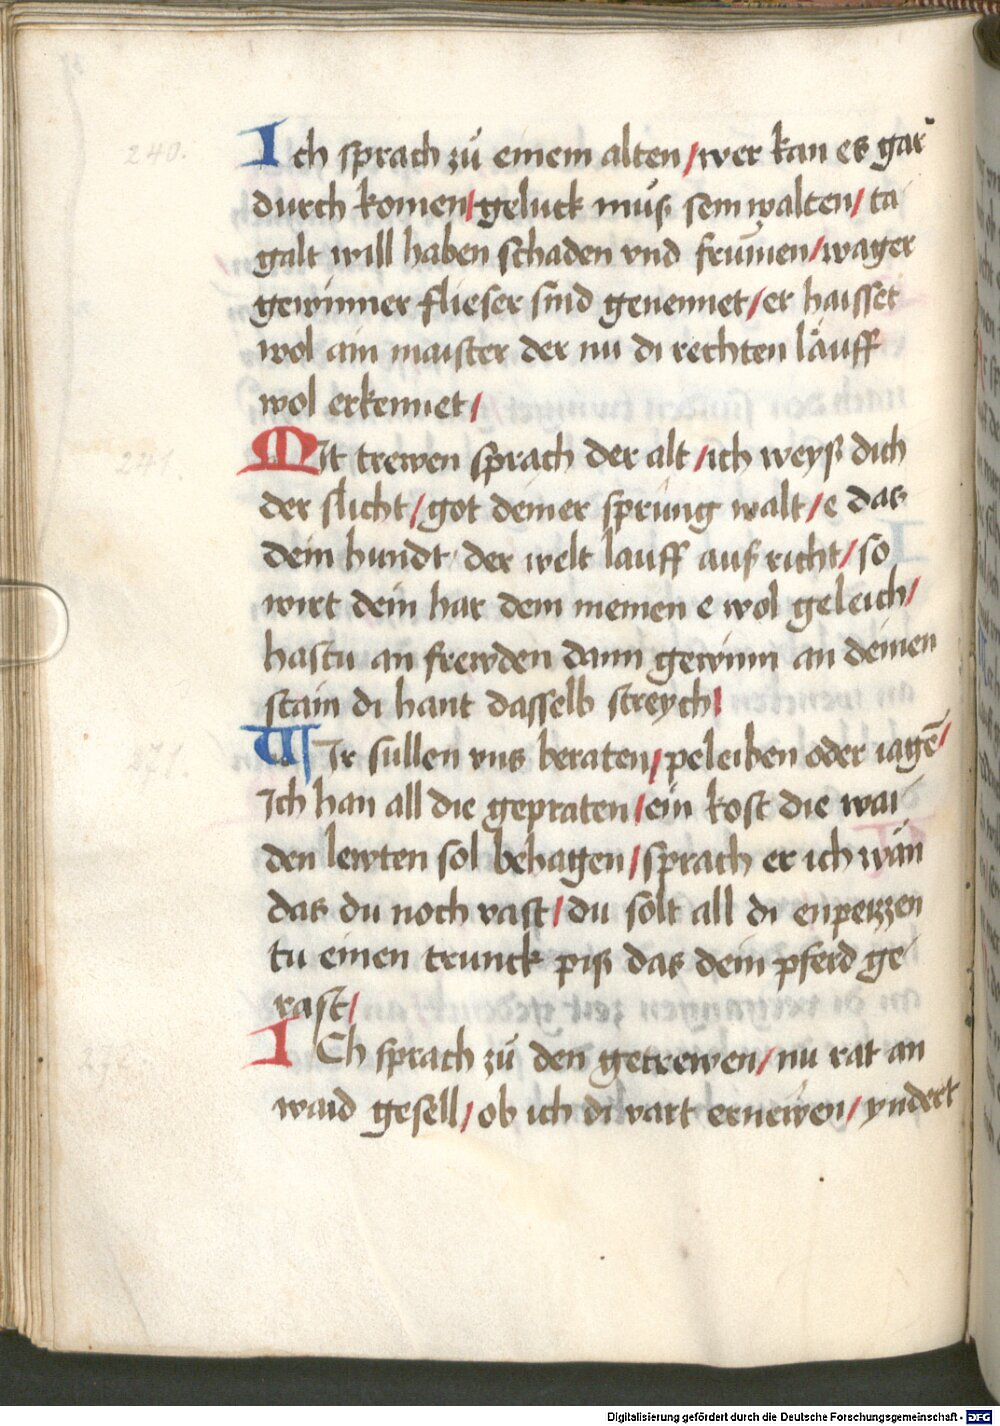 240.
Ich sprach zů einem alten / wer kan es gar
durch komen / geluck můs sein walten / ta
galt will haben schaden vnd frům̄en / wager
gewinner flieser sind genennet / er haisset
wol ain maister der nu di rechten läuff
wol erkennet /
241.
Mit trewen sprach der alt / ich weyß dich
der slicht / got deiner sprüng walt / e das
dein hundt der welt lauff auß richt / so
wirt dein har dem meinen e wol geleich /
hastu an frewden dann gewinn an deinen
stain di hant dasselb streych /
271.
Wir sullen vns beraten / peleiben oder iagē /
Ich han all die gepraten / ein kost die wai
den lewten sol behagen / sprach er ich wän
das du noch vast / du solt all di enpeizzen
tu einen trunck piß das dein pferd ge
rast /
272.
ICh sprach zů den getrewen / nu rat an
waid gesell / ob ich di vart ernewen / yndert
Digitalisierung gefördert durch die Deutsche Forschungsgemeinschaft - DFG